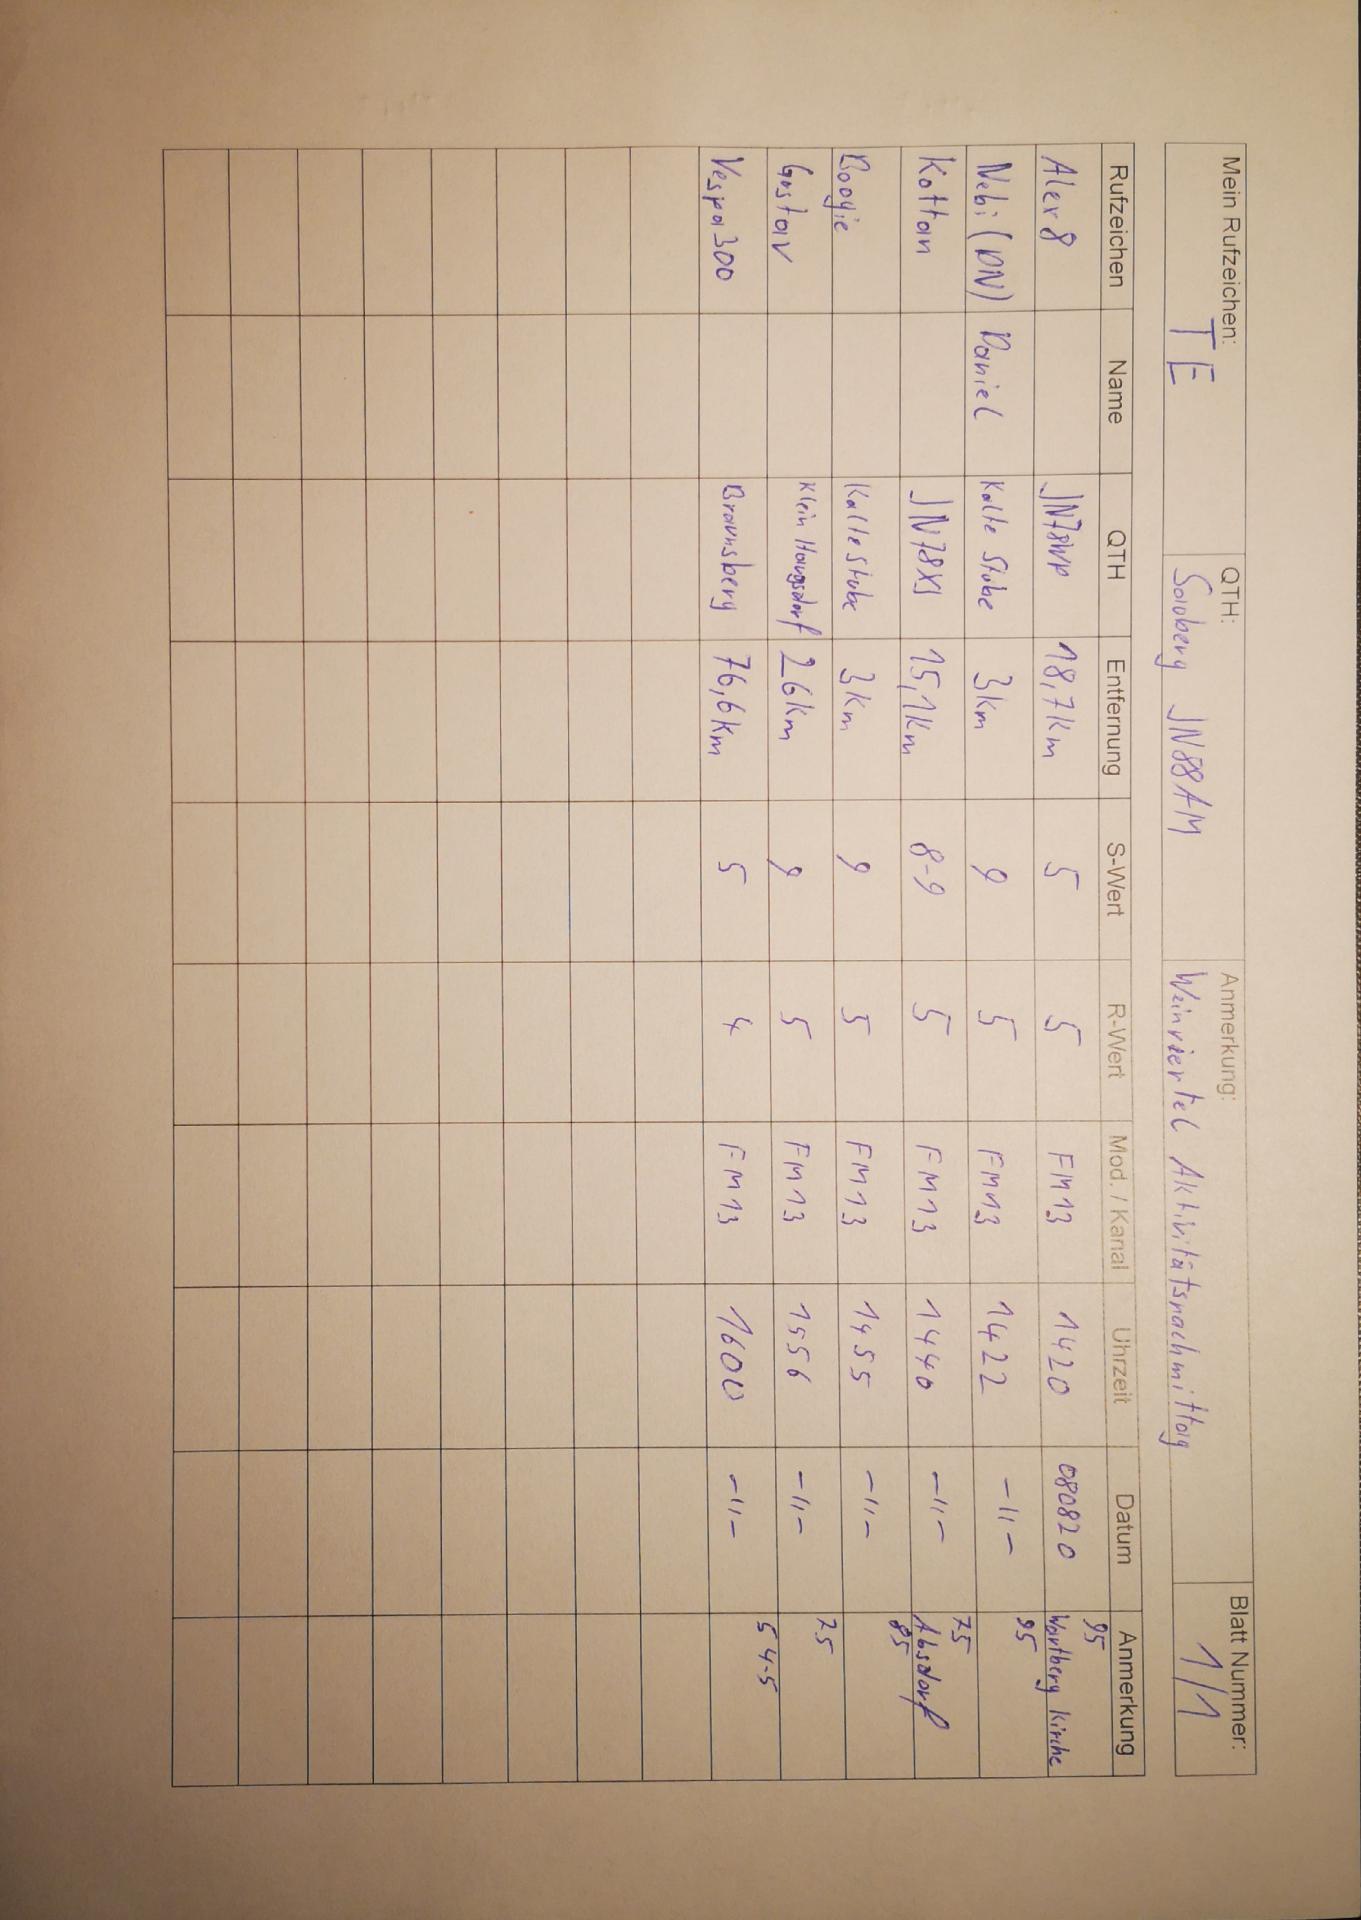 Mein Rufzeichen: QTH: Anmerkung: Blatt Nummer:
TE JN88AM Weinviertel Aktivitätsnachmittag 1/1
Rufzeichen Name QTH Entfernung S-Wert R-Wert Mod. / Kanal Uhrzeit Datum Anmerkung
95
Alex 8 JN78WP 18,7km 5 5 FM13 1420 080820 Wartberg Kirche
95
Nebi (DN) Daniel Kalte Stube 3km 9 5 FM13 1422 -"-
75
Kottan 15,1km 8-9 5 FM13 1440 -"- Absdorf
85
Boogie Kalte Stube 3km 9 5 FM13 1455 -"-
75
Gustav Klein Haugsdorf 26km 9 5 FM13 1556 -"-
54-5
Vespa 300 Braunsberg 76,6km 5 4 FM13 1600 -"-